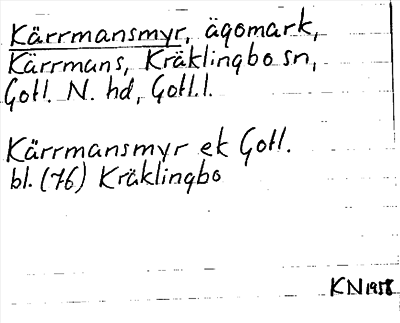 Kärrmansmyr, ägomark,
Kärrmans, Kräklingbo sn,
Gotl. N. hd, Gotl.l.
Kärrmansmyr ek Gotl.
bl. (76) Kräklingbo
KN 1958